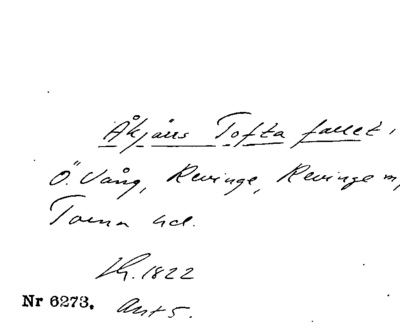 Åkjärs Tofta fallet,
Ö. Vång, Revinge, Revinge m,
Torna hd.
Lh. 1822
Nr 6273. Akt 5.